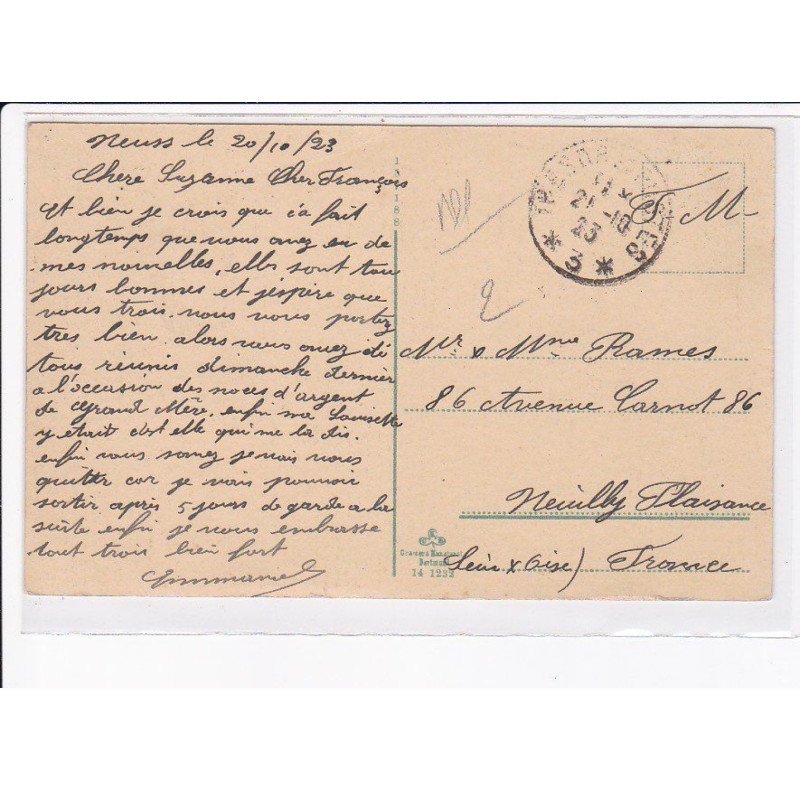 Neuss le 20/10/23
Chère Suzanne Cher François
Et bien je crois que ça fait
longtemps que vous avez eu de
mes nouvelles, elles sont tou
jours bonnes et j'espère que
vous trois vous vous portez
très bien. alors vous avez été
tous réunis dimanche dernier
a l'occasion des noces d'argent
de Grand Mère. enfin ma Louisette
y était c'est elle qui me la dis.
enfin vous savez je vais vous
quitter car je vais pouvoir
sortir après 5 jours de garde a la
suite enfin je vous embrasse
tout trois bien fort
Emmanuel
21 -10
23
* 3 *
F. M-
Mr & Mme Rames
86 Avenue Carnot 86
Neuilly Plaisance
(Seine & Oise) France
Dortmund
14 1233